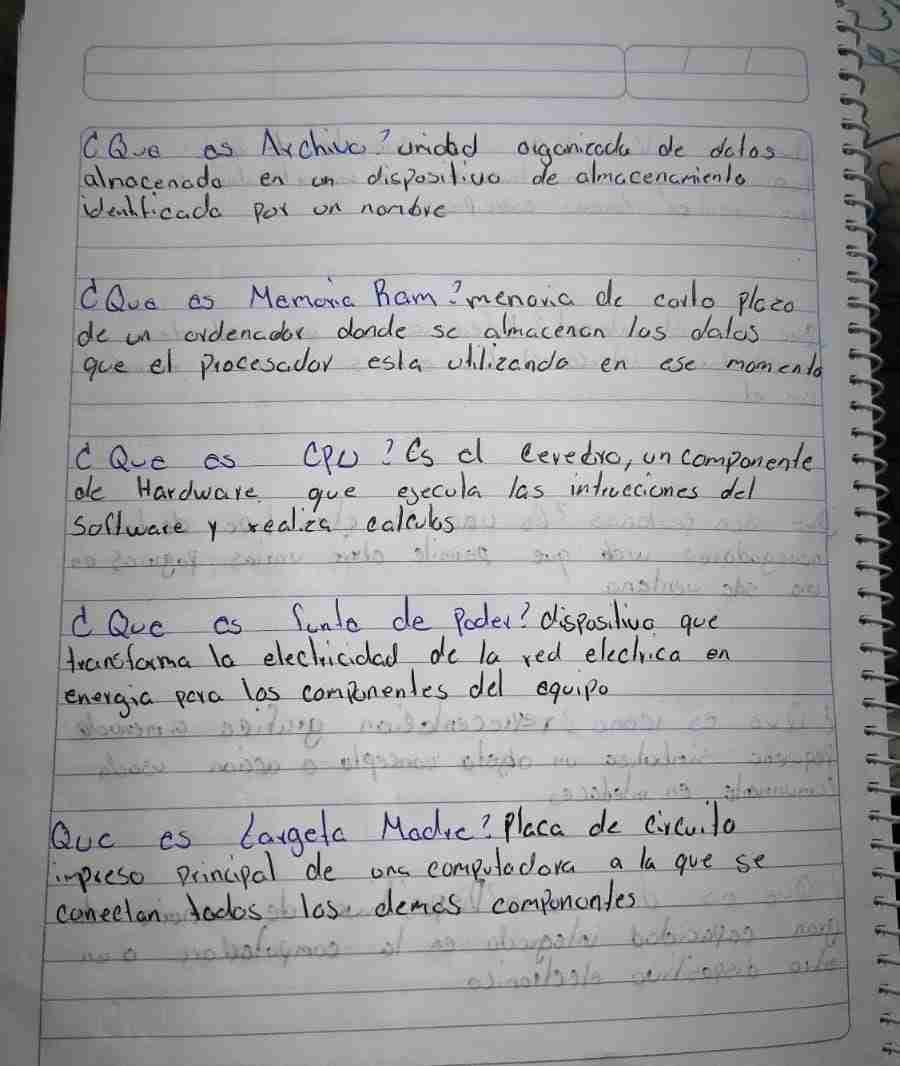 ¿Que es Archivo? unidad organizada de datos
almacenada en un dispositivo de almacenamiento
identificada por un nombre
¿Que es Memoria Ram? memoria de corto plazo
de un ordenador donde se almacenan los datos
que el procesador esta utilizando en ese momento
¿Que es CPU? Es el Cerebro, un componente
de Hardware que ejecuta las intrucciones del
Software y realiza calculos
¿Que es funte de Poder? dispositivo que
transforma la electricidad de la red electrica en
energia para los componentes del equipo
Que es targeta Madre? Placa de circuito
impreso principal de una computadora a la que se
conectan todos los demas componentes